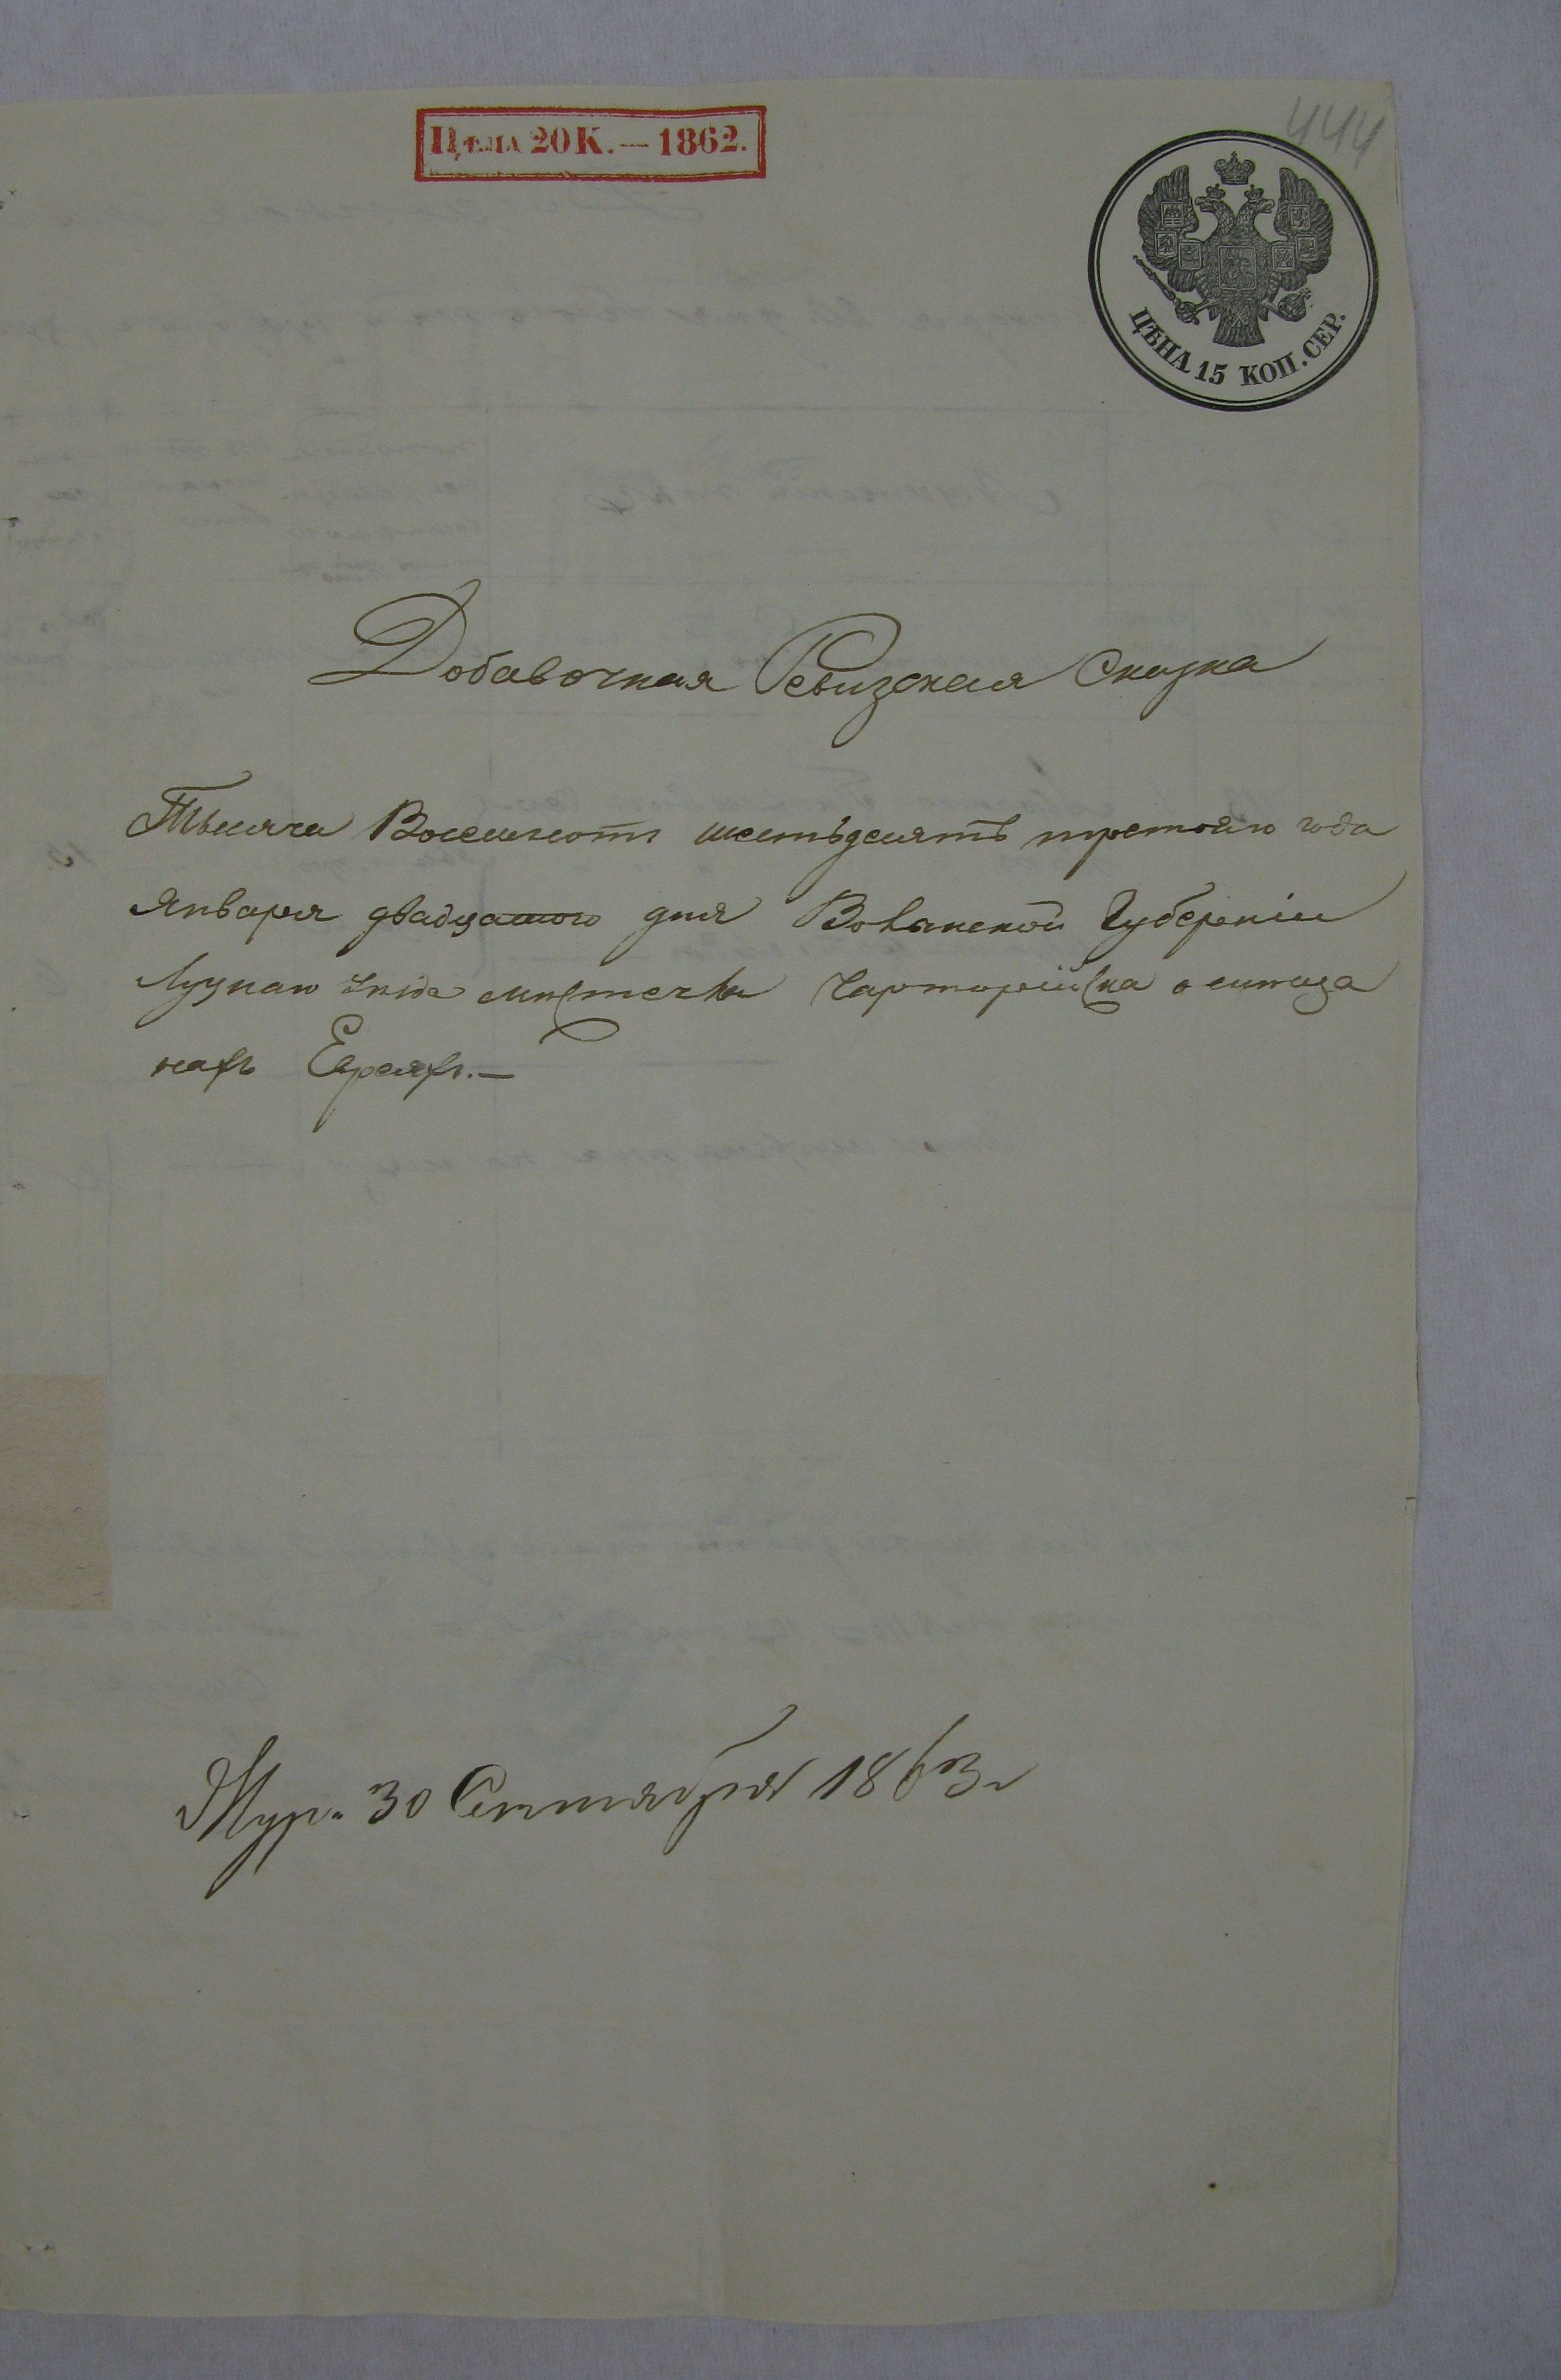 444
Цѣна 20 К. — 1862.
ЦѢНА 15 КОП. СЕР.
Добавочная Ревизская Сказка
Тысяча Восемьсотъ шестьдесятъ третьяго года
Января двадцатого дня Волынской Губерніи
Луцкаго Уѣзда мѣстечка Чарторійска о
нахъ Евреяхъ.—
Жур. 30 Сентября 1863 г